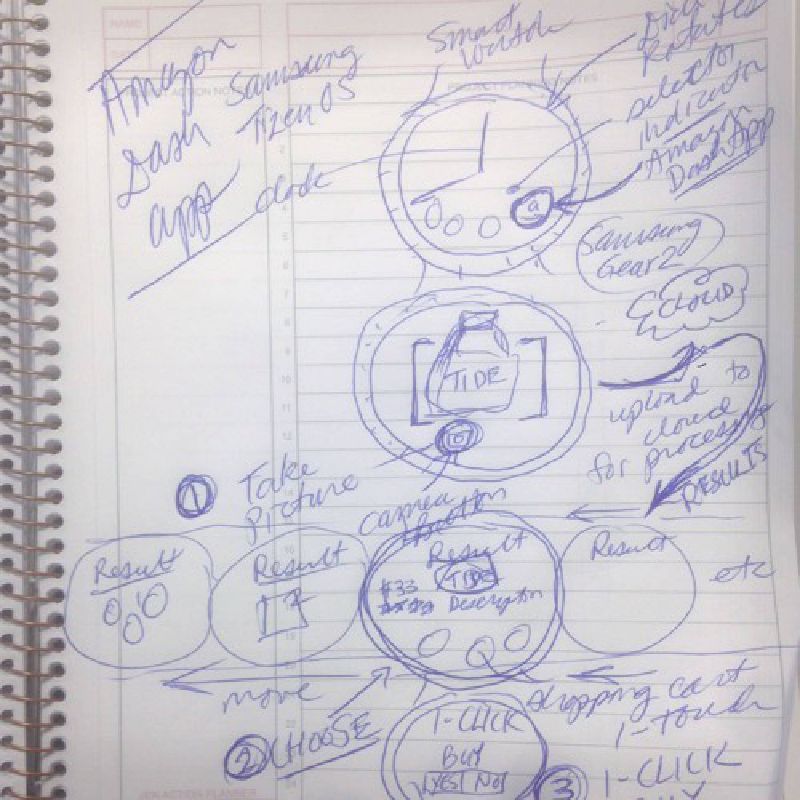 NAME
Smart
Watch
Amazon
Dash
app
ACTION NOTES
Samsung
Tizen OS
Dial
Rotates
selector
indicator
Amazon
Dash App
clock
a
Samsung
Gear 2
CLOUD
TIDE
upload to
cloud
for processing
RESULTS
1 Take
Picture
camera
button
Result
Result
Result
TIDE
$33
Description
Result
etc
move
2 CHOOSE
shopping cart
1-touch
1-CLICK
BUY
YES NO
3 1-CLICK
BUY
ACTION PLANNER